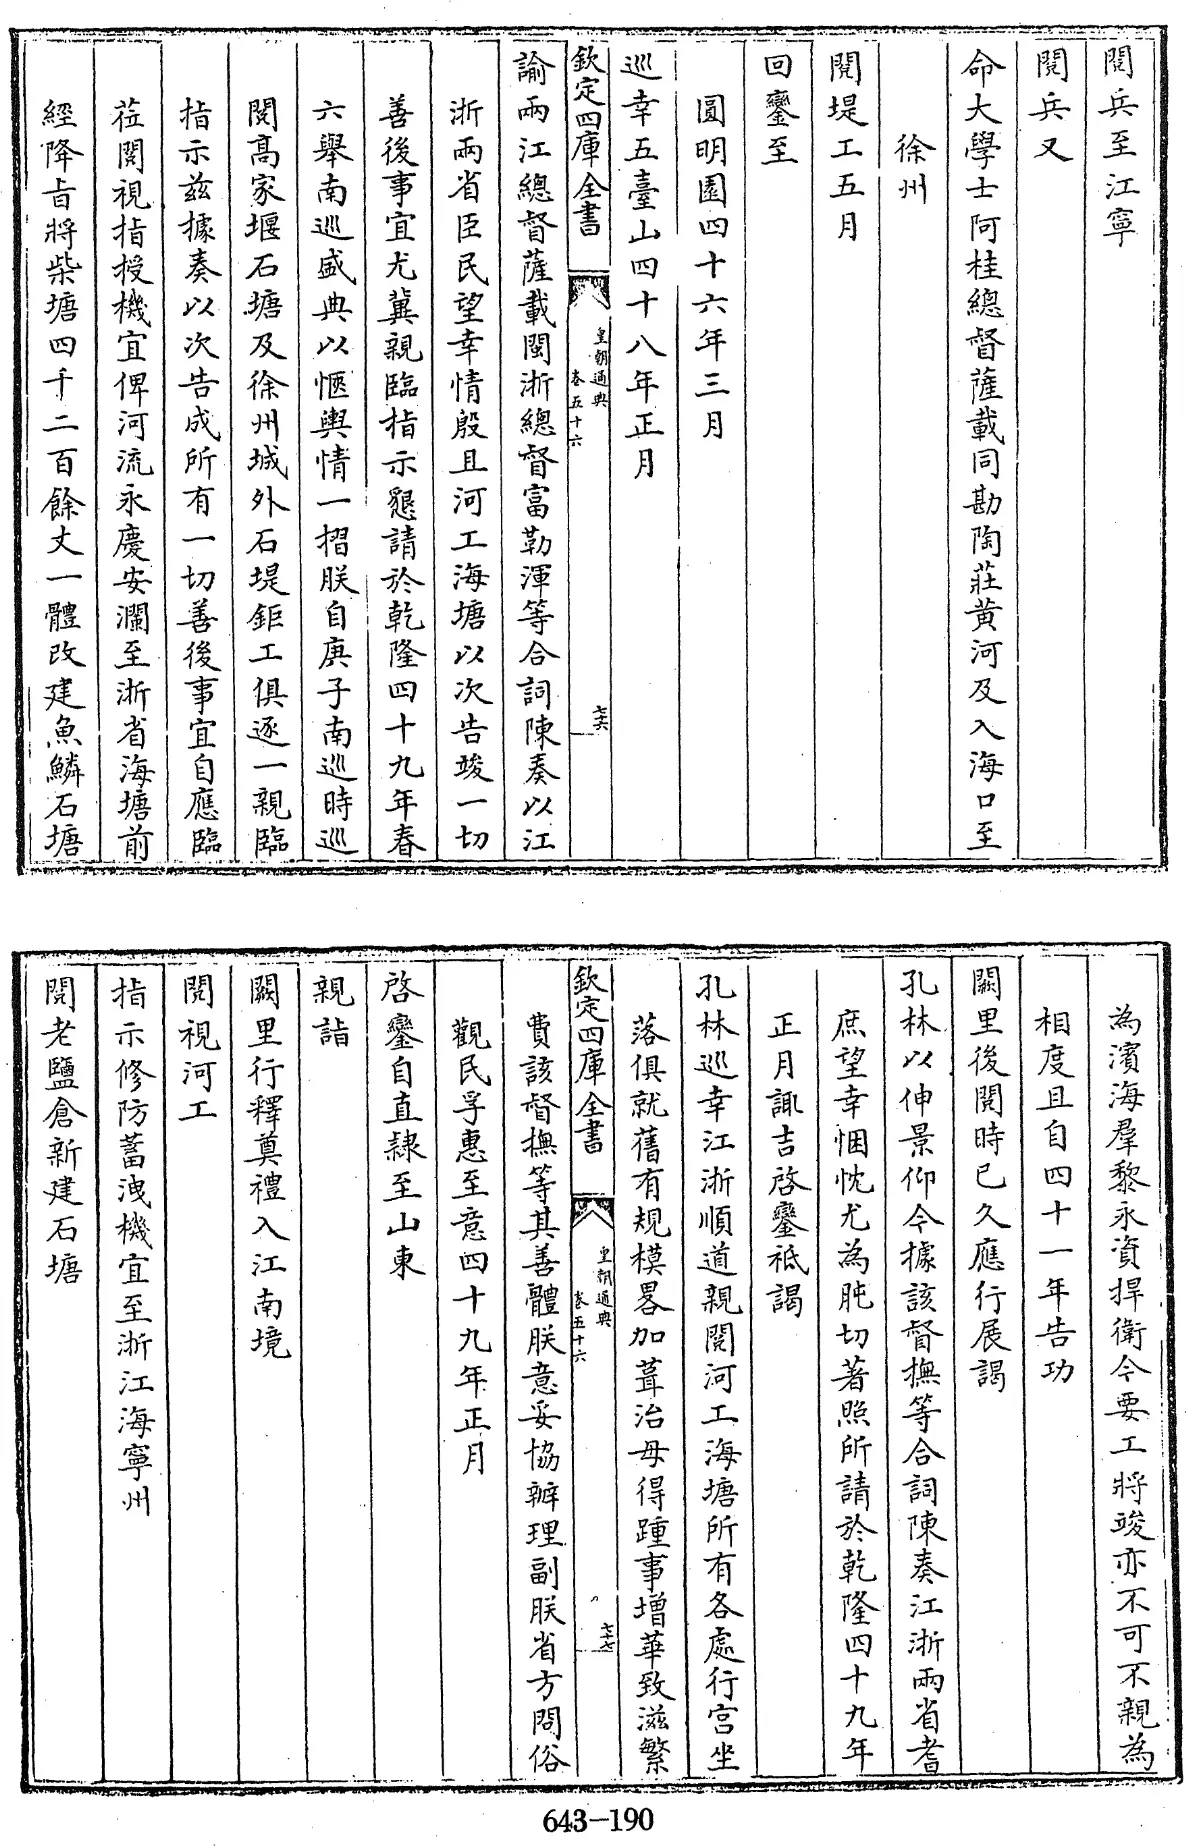 閱兵至江寧
閱兵又
命大學士阿桂總督薩載同勘陶莊黃河及入海口至
徐州
閱堤工五月
回鑾至
圓明園四十六年三月
巡幸五臺山四十八年正月
欽定四庫全書
皇朝通典
卷五十六
七六
諭兩江總督薩載閩浙總督富勒渾等合詞陳奏以江
浙兩省臣民望幸情殷且河工海塘以次告竣一切
善後事宜尤冀親臨指示懇請於乾隆四十九年春
六舉南巡盛典以愜輿情一摺朕自庚子南巡時巡
閱高家堰石塘及徐州城外石堤鉅工俱逐一親臨
指示茲據奏以次告成所有一切善後事宜自應臨
莅閱視指授機宜俾河流永慶安瀾至浙省海塘前
經降旨將柴塘四千二百餘丈一體改建魚鱗石塘
為濱海羣黎永資捍衛今要工將竣亦不可不親為
相度且自四十一年告功
闕里後閱時已久應行展謁
孔林以伸景仰今據該督撫等合詞陳奏江浙兩省耆
庶望幸悃忱尤為肫切著照所請於乾隆四十九年
正月諏吉啓鑾祗謁
孔林巡幸江浙順道親閱河工海塘所有各處行宮坐
落俱就舊有規模畧加葺治毋得踵事增華致滋繁
欽定四庫全書
皇朝通典
卷五十六
七七
費該督撫等其善體朕意妥協辦理副朕省方問俗
觀民孚惠至意四十九年正月
啓鑾自直隸至山東
親詣
闕里行釋奠禮入江南境
閱視河工
指示修防蓄洩機宜至浙江海寧州
閱老鹽倉新建石塘
643-190